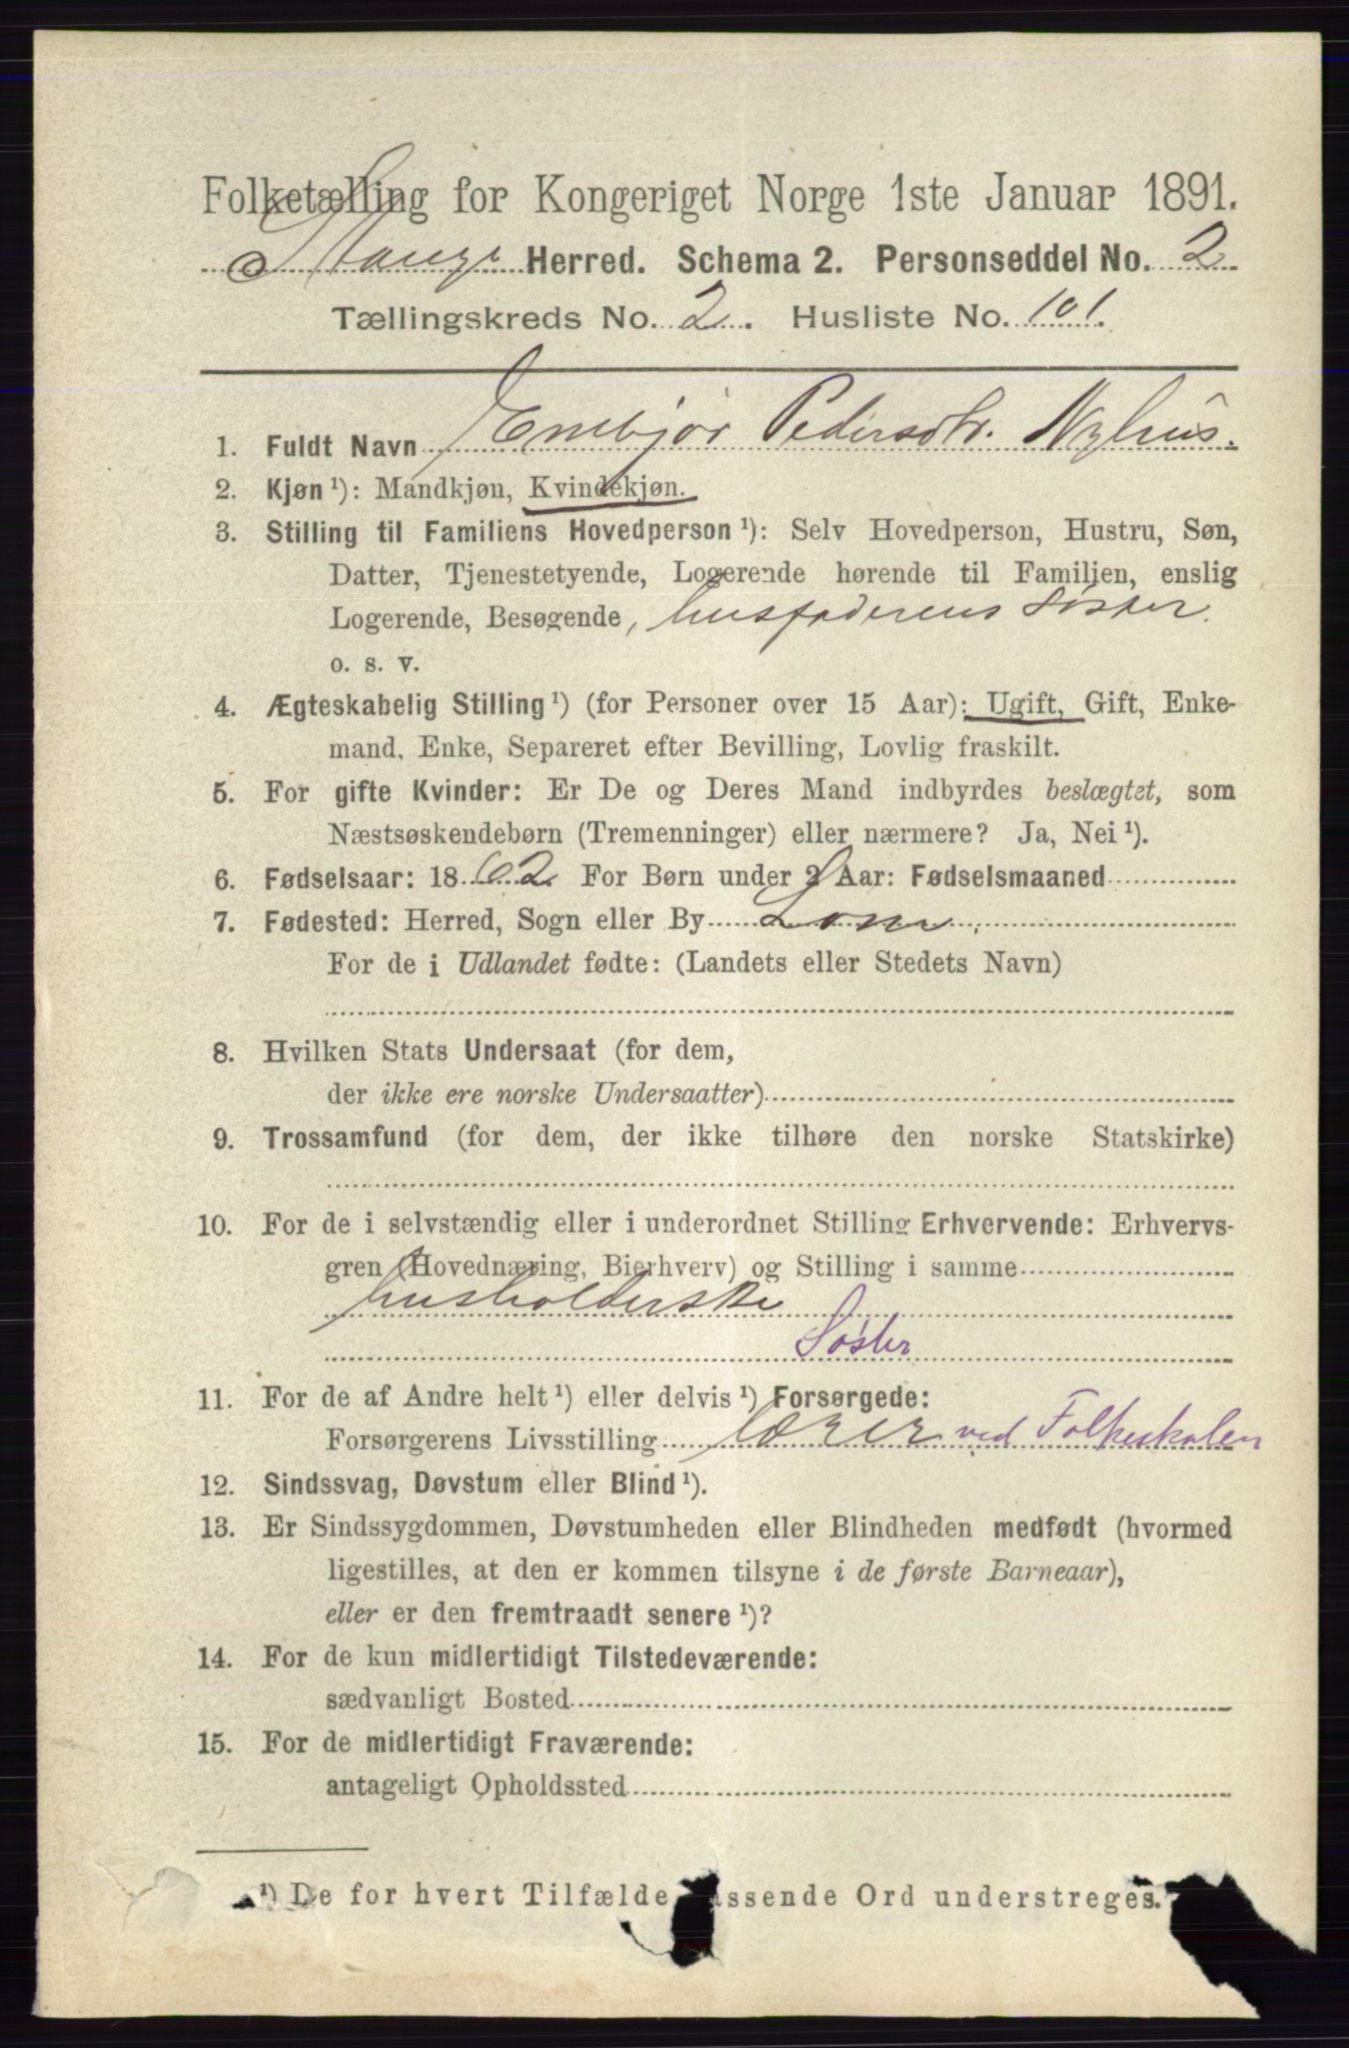 Folketælling for Kongeriget Norge 1ste Januar 1891.
Stange Herred. Schema 2. Personseddel No. 2
Tællingskreds No. 2. Husliste No. 101.
1. Fuldt Navn Enebjør Pedersdtr. Nyhus.
2. Kjøn ¹): Mandkjøn, Kvindekjøn.
3. Stilling til Familiens Hovedperson ¹): Selv Hovedperson, Hustru, Søn,
Datter, Tjenestetyende, Logerende hørende til Familien, enslig
Logerende, Besøgende, husfaderens Søster.
o. s. v.
4. Ægteskabelig Stilling ¹) (for Personer over 15 Aar): Ugift, Gift, Enke-
mand, Enke, Separeret efter Bevilling, Lovlig fraskilt.
5. For gifte Kvinder: Er De og Deres Mand indbyrdes beslægtet, som
Næstsøskendebørn (Tremenninger) eller nærmere? Ja, Nei ¹).
6. Fødselsaar: 1862. For Børn under 2 Aar: Fødselsmaaned
7. Fødested: Herred, Sogn eller By Lom.
For de i Udlandet fødte: (Landets eller Stedets Navn)
8. Hvilken Stats Undersaat (for dem,
der ikke ere norske Undersaatter)
9. Trossamfund (for dem, der ikke tilhøre den norske Statskirke)
10. For de i selvstændig eller i underordnet Stilling Erhvervende: Erhvervs-
gren (Hovednæring, Bierhverv) og Stilling i samme
husholderske
Søster
11. For de af Andre helt ¹) eller delvis ¹) Forsørgede:
Forsørgerens Livsstilling lærer ved Folkeskolen
12. Sindssvag, Døvstum eller Blind ¹).
13. Er Sindssygdommen, Døvstumheden eller Blindheden medfødt (hvormed
ligestilles, at den er kommen tilsyne i de første Barneaar),
eller er den fremtraadt senere ¹)?
14. For de kun midlertidigt Tilstedeværende:
sædvanligt Bosted
15. For de midlertidigt Fraværende:
antageligt Opholdssted
¹) De for hvert Tilfælde passende Ord understreges.